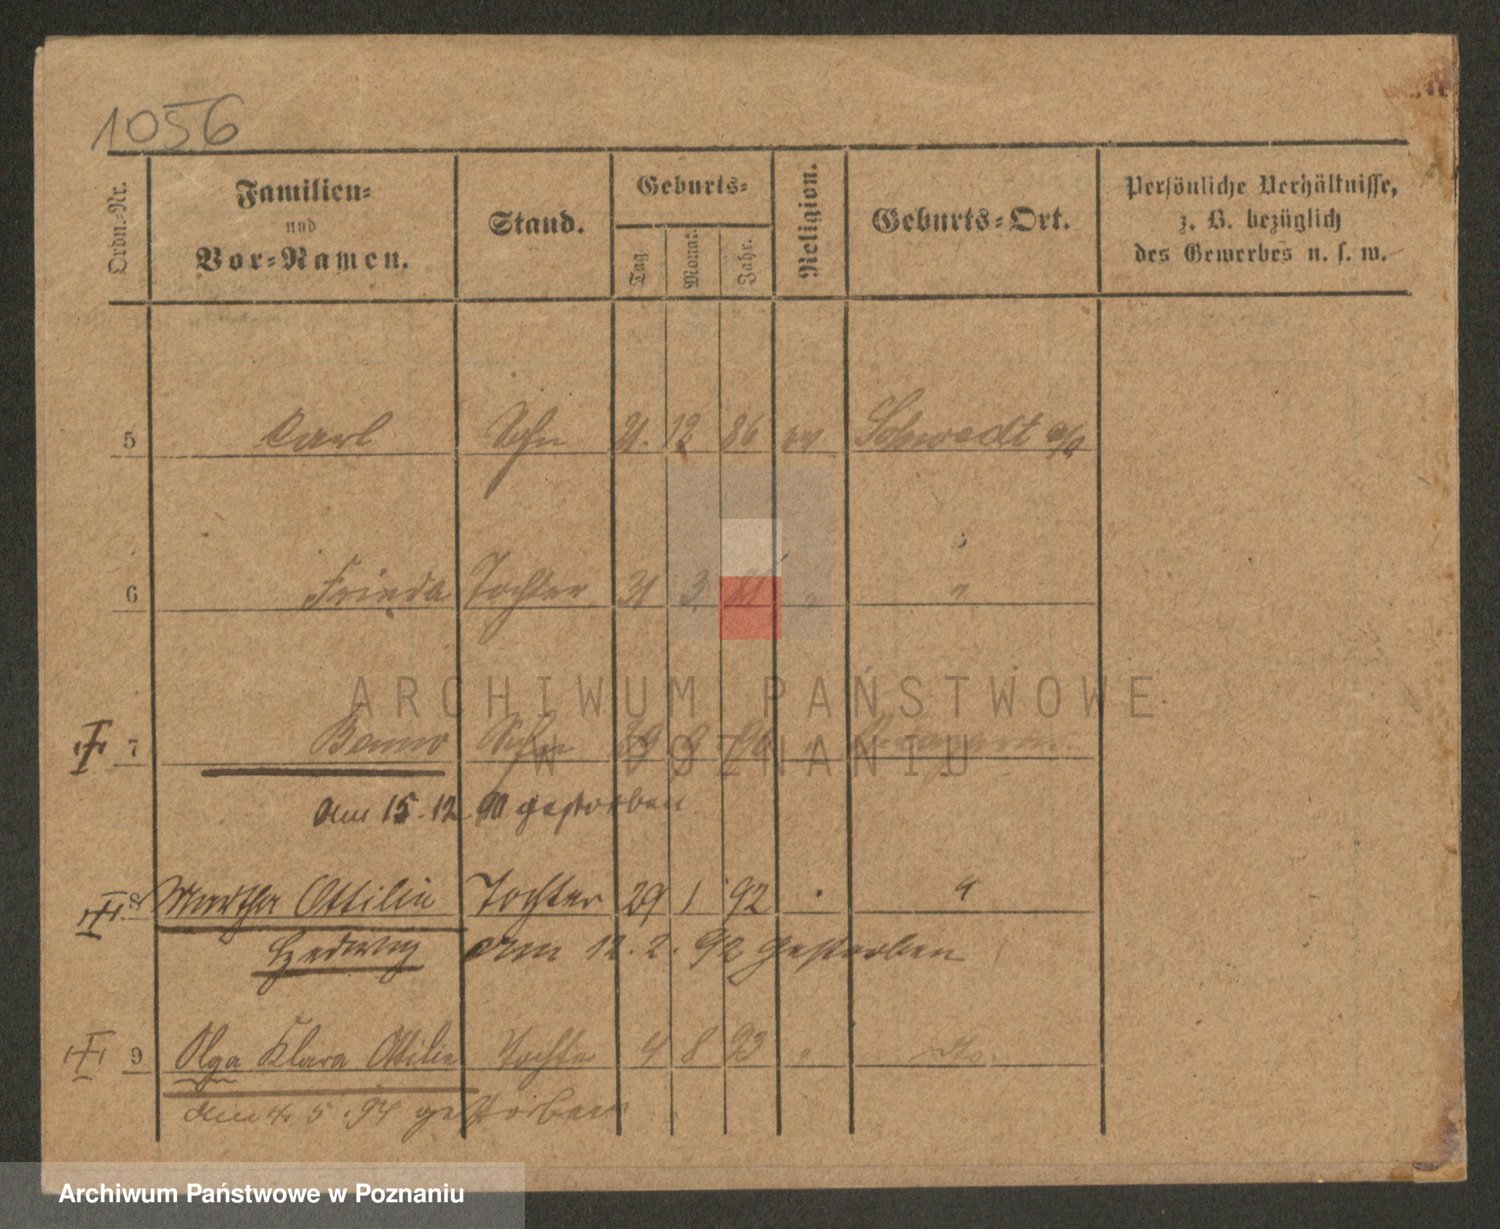 1056
Ordn.-Nr. Familien- und Vor-Namen. Stand. Geburts- Tag. Monat. Jahr. Religion. Geburts-Ort. Persönliche Verhältnisse, z. B. bezüglich des Gewerbes u. s. w.
5 Carl Sohn 21. 12 86 ev Schwedt a/O
6 Frieda Tochter 31 3. 88 " "
ARCHIWUM PAŃSTWOWE
7 Benno Sohn 29 9 90 "
W POZNANIU
am 15. 12 90 gestorben
8 Martha Ottilie Tochter 29 1 92 " "
Hedwig am 12. 2. 92 gestorben
9 Olga Klara Ottilie Tochter 4 8 93 " dto.
am 4. 5. 94 gestorben
Archiwum Państwowe w Poznaniu